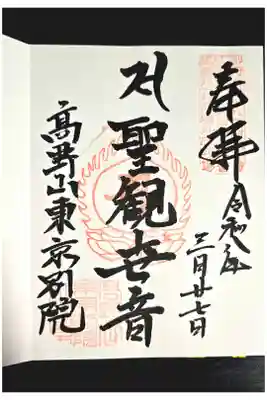 奉拝
令和年
三月廿七日
聖観世音
高野山東京別院